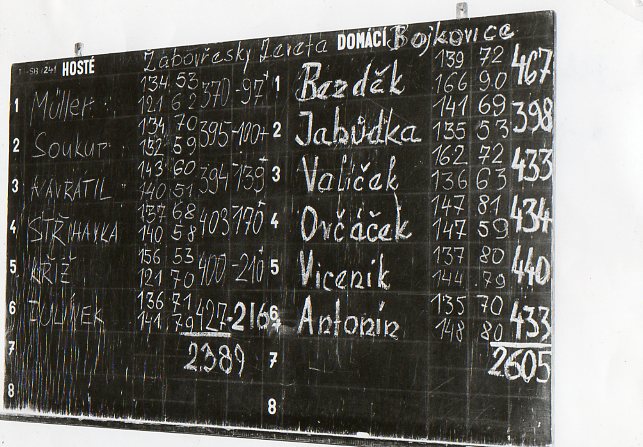 HOSTÉ Žabovřesky Zeveta DOMÁCÍ Bojkovice
1 Müller 134 53 370 -97+ 1 Bezděk 139 72 467
121 62 166 90
2 Soukup 134 70 395 -100+ 2 Jabůdka 141 69 398
132 59 135 53
3 NAVRÁTIL 143 60 394 -139+ 3 Valíček 162 72 433
140 51 136 63
4 STŘIHAVKA 137 68 403 -170+ 4 Ovčáček 147 81 434
140 58 147 59
5 KŘÍŽ 156 53 400 -210+ 5 Viceník 137 80 440
121 70 144 79
6 136 71 427 -216+ 6 Antonín 135 70 433
141 79 148 80
7 2389 7 2605
8 8